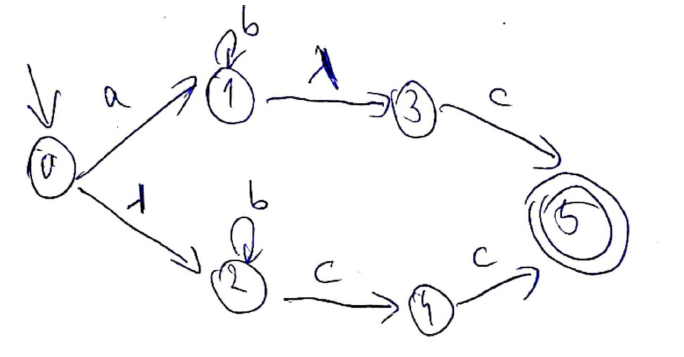 b
a 1 λ 3 c
0
λ b 5
2 c 4 c